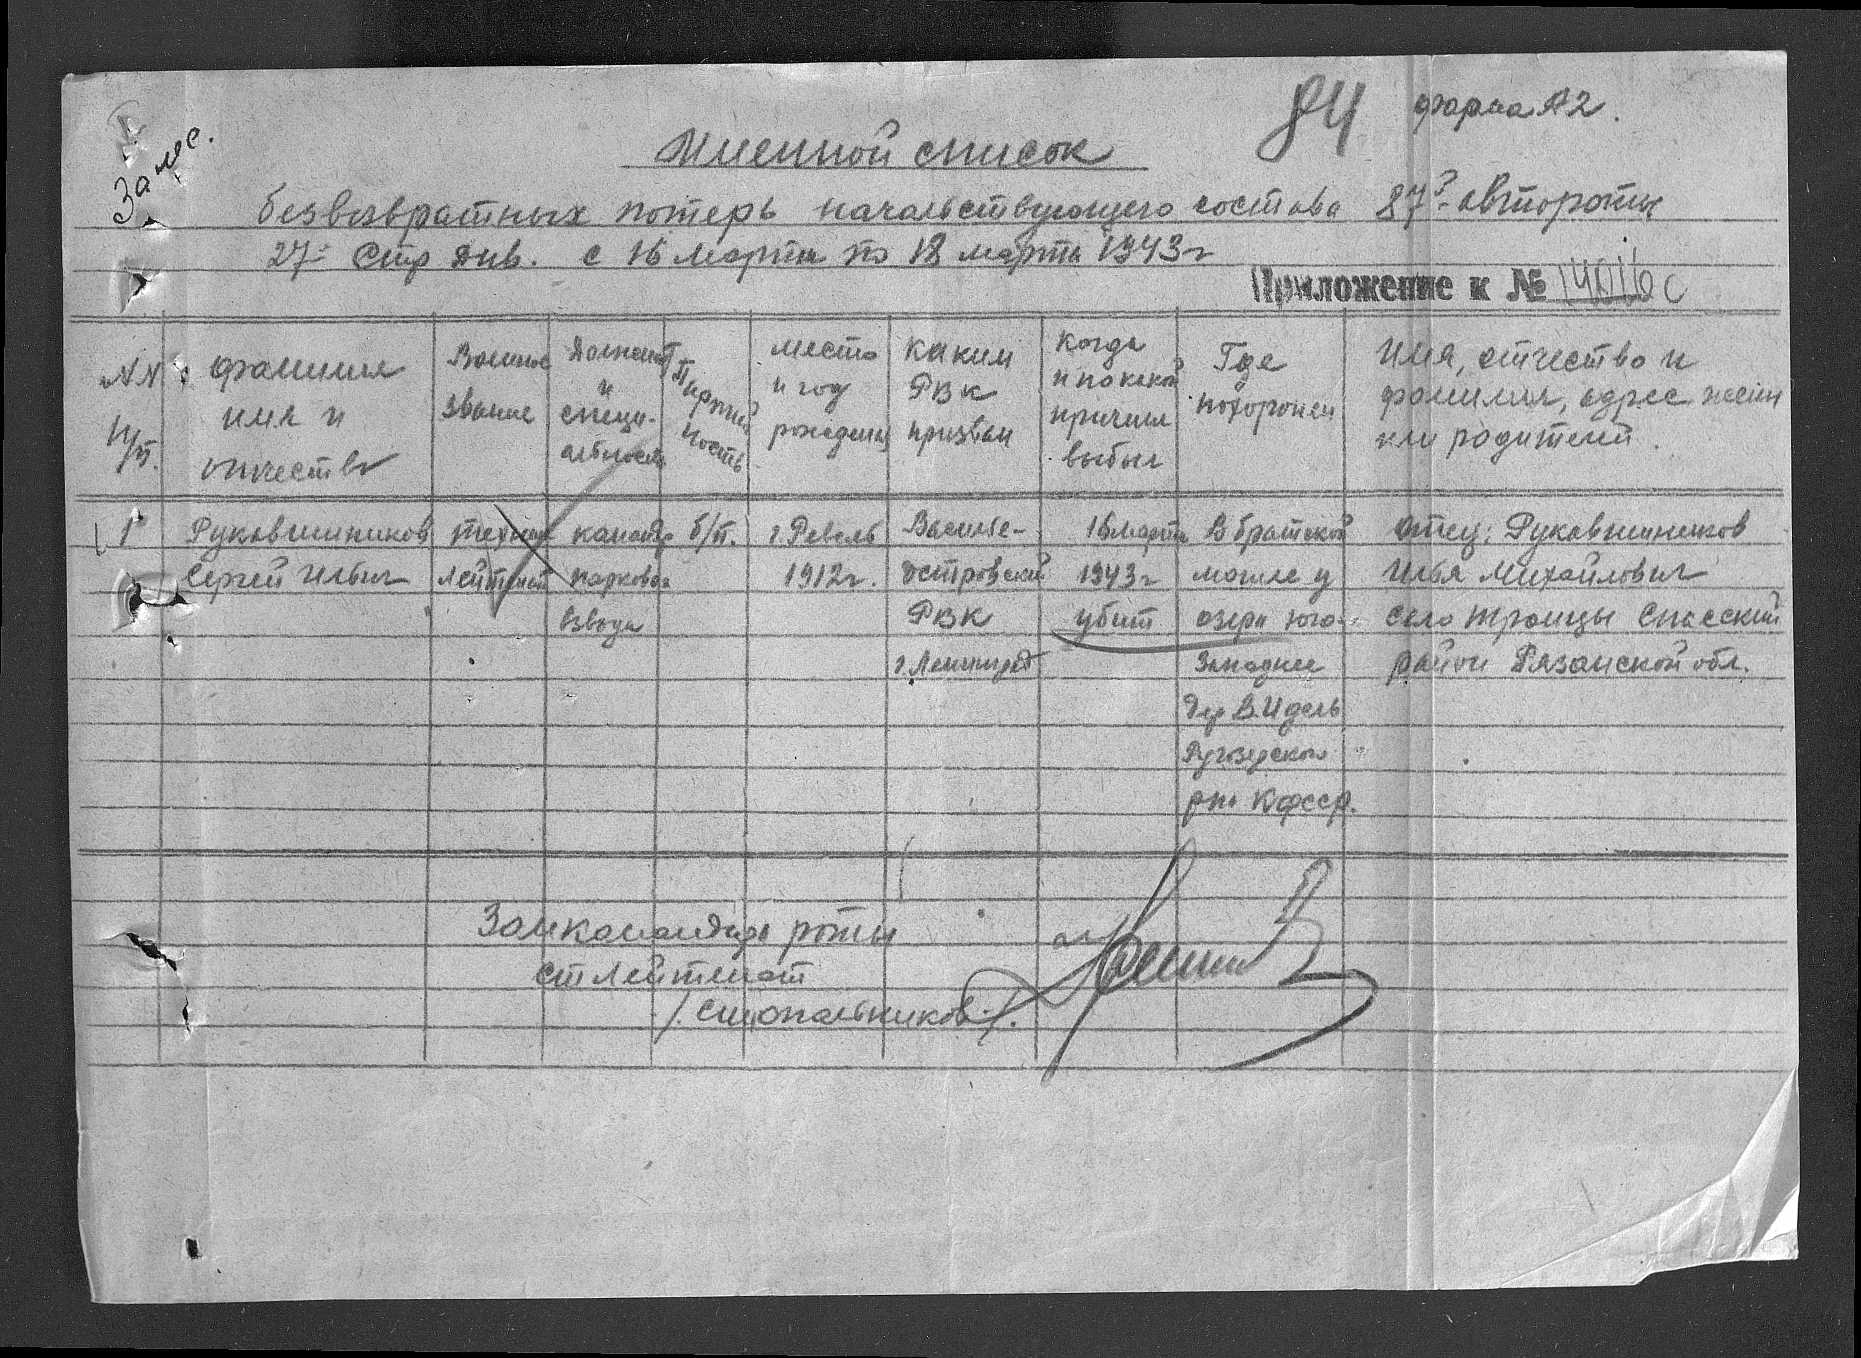 84 форма №2.
Именной список
Зам. с.
безвозвратных потерь начальствующего состава 87й автороты
27й Стр Див. с 16 марта по 18 марта 1943г
Приложение к № 14016с
NN п/п.
фамилия
имя и
отчество
Воинское
звание
Должность
и
специ-
альность
Партий
ность
место
и год
рождения
каким
РВК
призван
Когда
и по какой
причине
выбыл
Где
похоронен
Имя, отчество и
фамилия, адрес жены
или родителей.
1 Рукавишников техник команд. б/п. г.Ревель Василе- 16 марта В братской отец: Рукавишников
Сергей Ильич лейтенант паркового 1912г. островский 1943г могиле у Илья Михайлович
взвода РВК убит озера юго- село Троицы Спасский
г.Ленинград западнее район Рязанской обл.
дер В.Идель
Ругозерского
р-на Кфсср.
Замкомандира роты
ст лейтенант